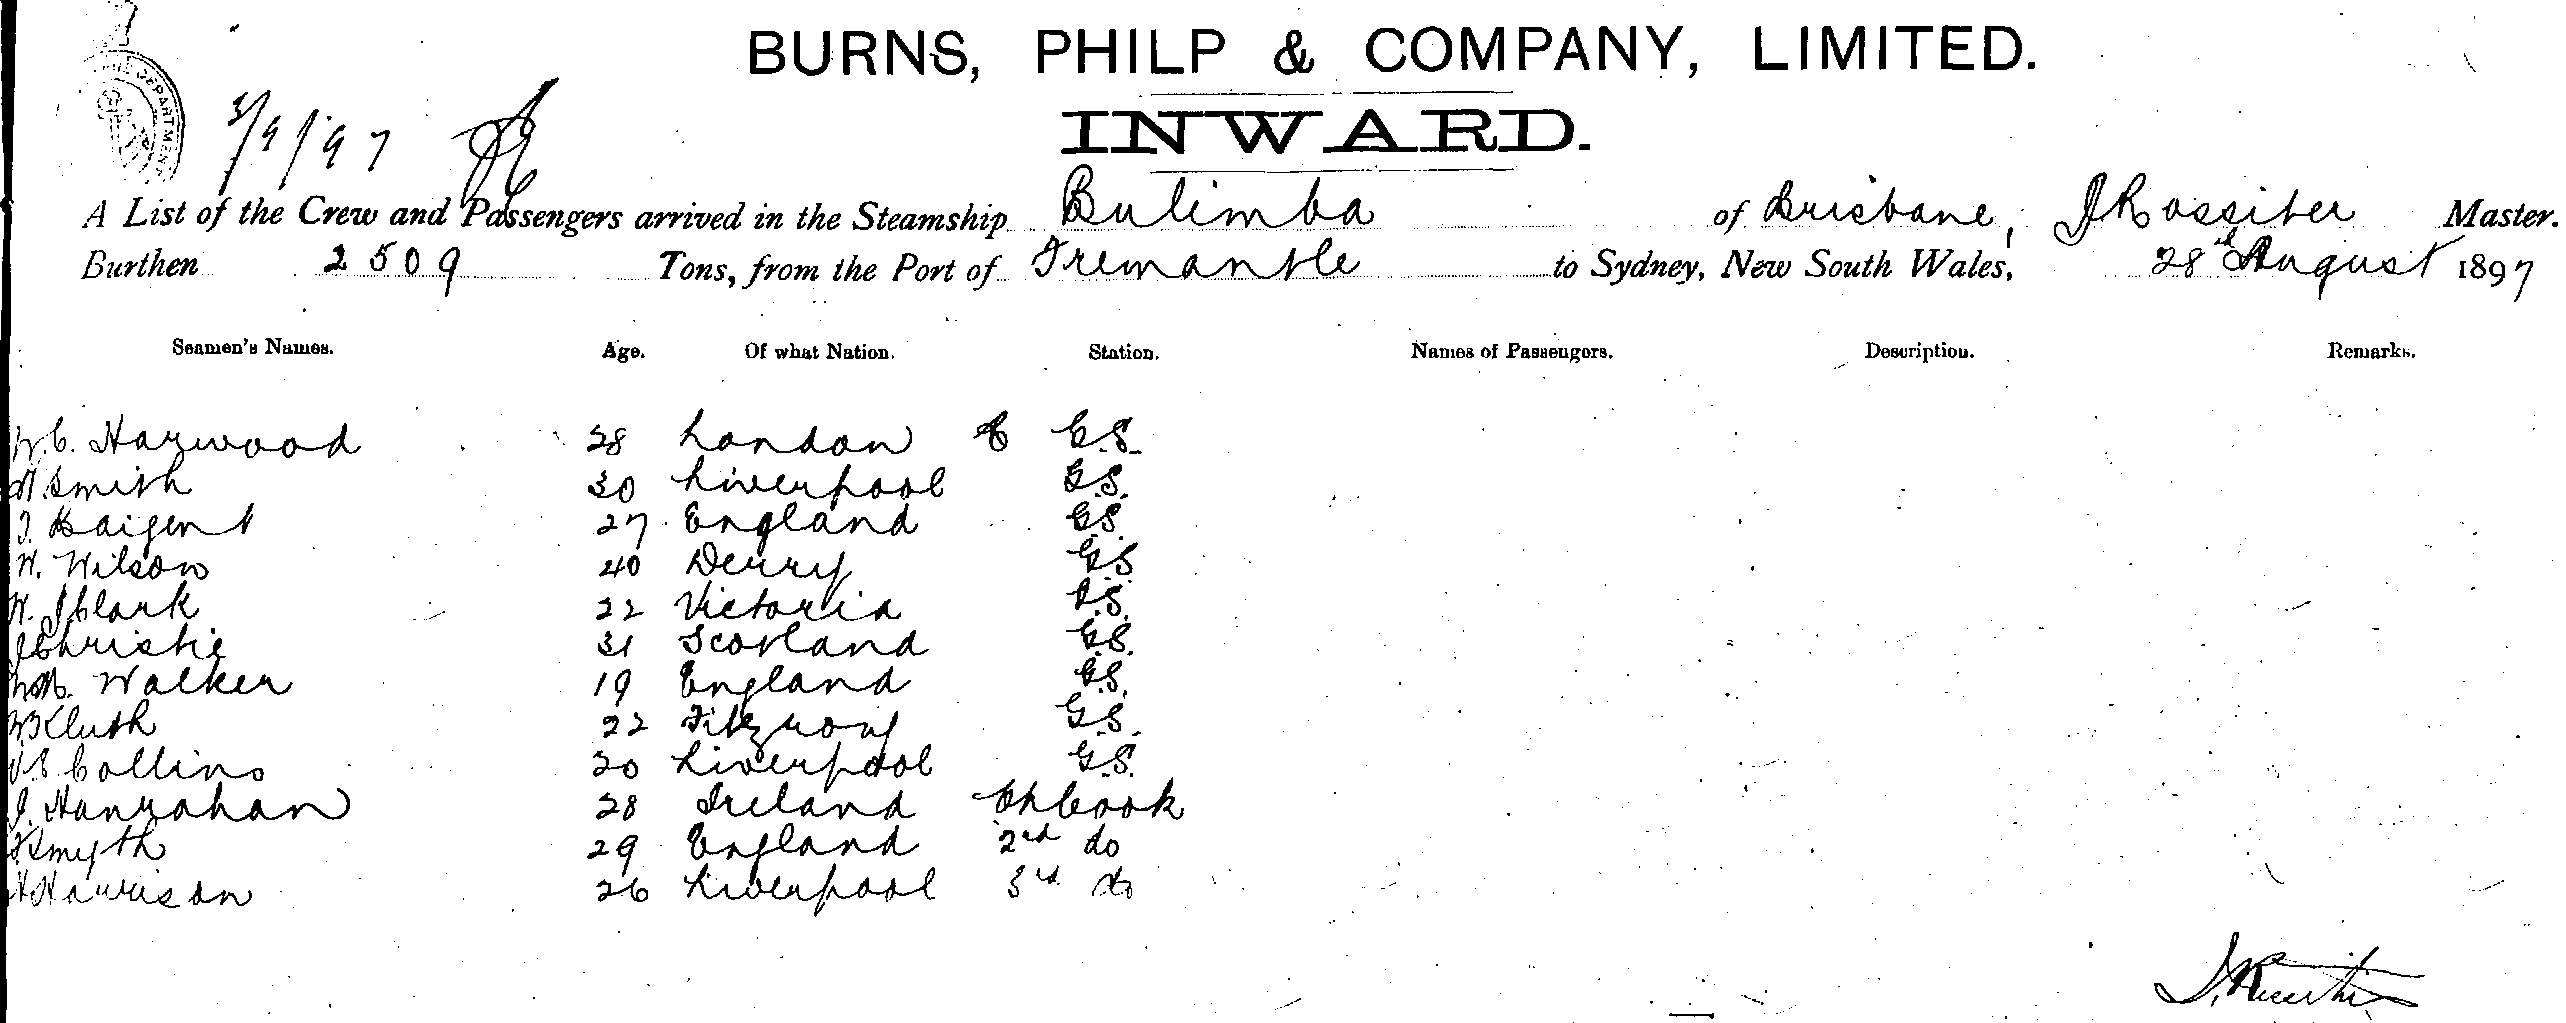 BURNS, PHILP & COMPANY, LIMITED.
3/9/97
INWARD.
A List of the Crew and Passengers arrived in the Steamship Bulimba of Brisbane, J Rossiter Master.
Burthen 2509 Tons, from the Port of Fremantle to Sydney, New South Wales, 28th August 1897
Seamen's Names. Age. Of what Nation. Station. Names of Passengers. Description. Remarks.
W.C. Harwood 28 London G.S.
Smith 30 Liverpool G.S.
Baigent 27 England G.S.
W. Wilson 40 Derry G.S
W. J Clark 22 Victoria G.S.
J Christie 31 Scotland G.S.
Walker 19 England G.S.
Kluth 22 Fitzroy G.S.
Collins 20 Liverpool G.S.
J. Hanrahan 28 Ireland Ch Cook
Smyth 29 England 2nd do
H Harrison 26 Liverpool 3rd do